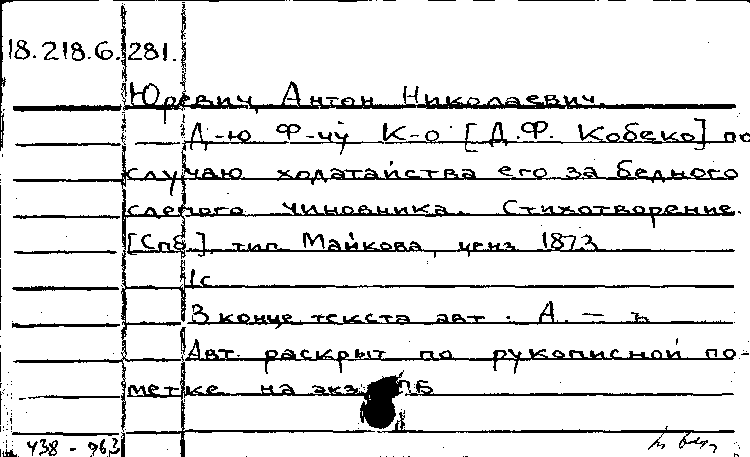 18.218.6.281.
Юревич, Антон Николаевич.
Д-ю Ф-чу К-о [Д.Ф. Кобеко] по
случаю ходатайства его за бедного
слепого чиновника. Стихотворение.
[Спб.], тип. Майкова, ценз. 1873
1с
В конце текста авт.: А. — ъ
Авт. раскрыт по рукописной по-
метке на экз. ПБ
438 - 963